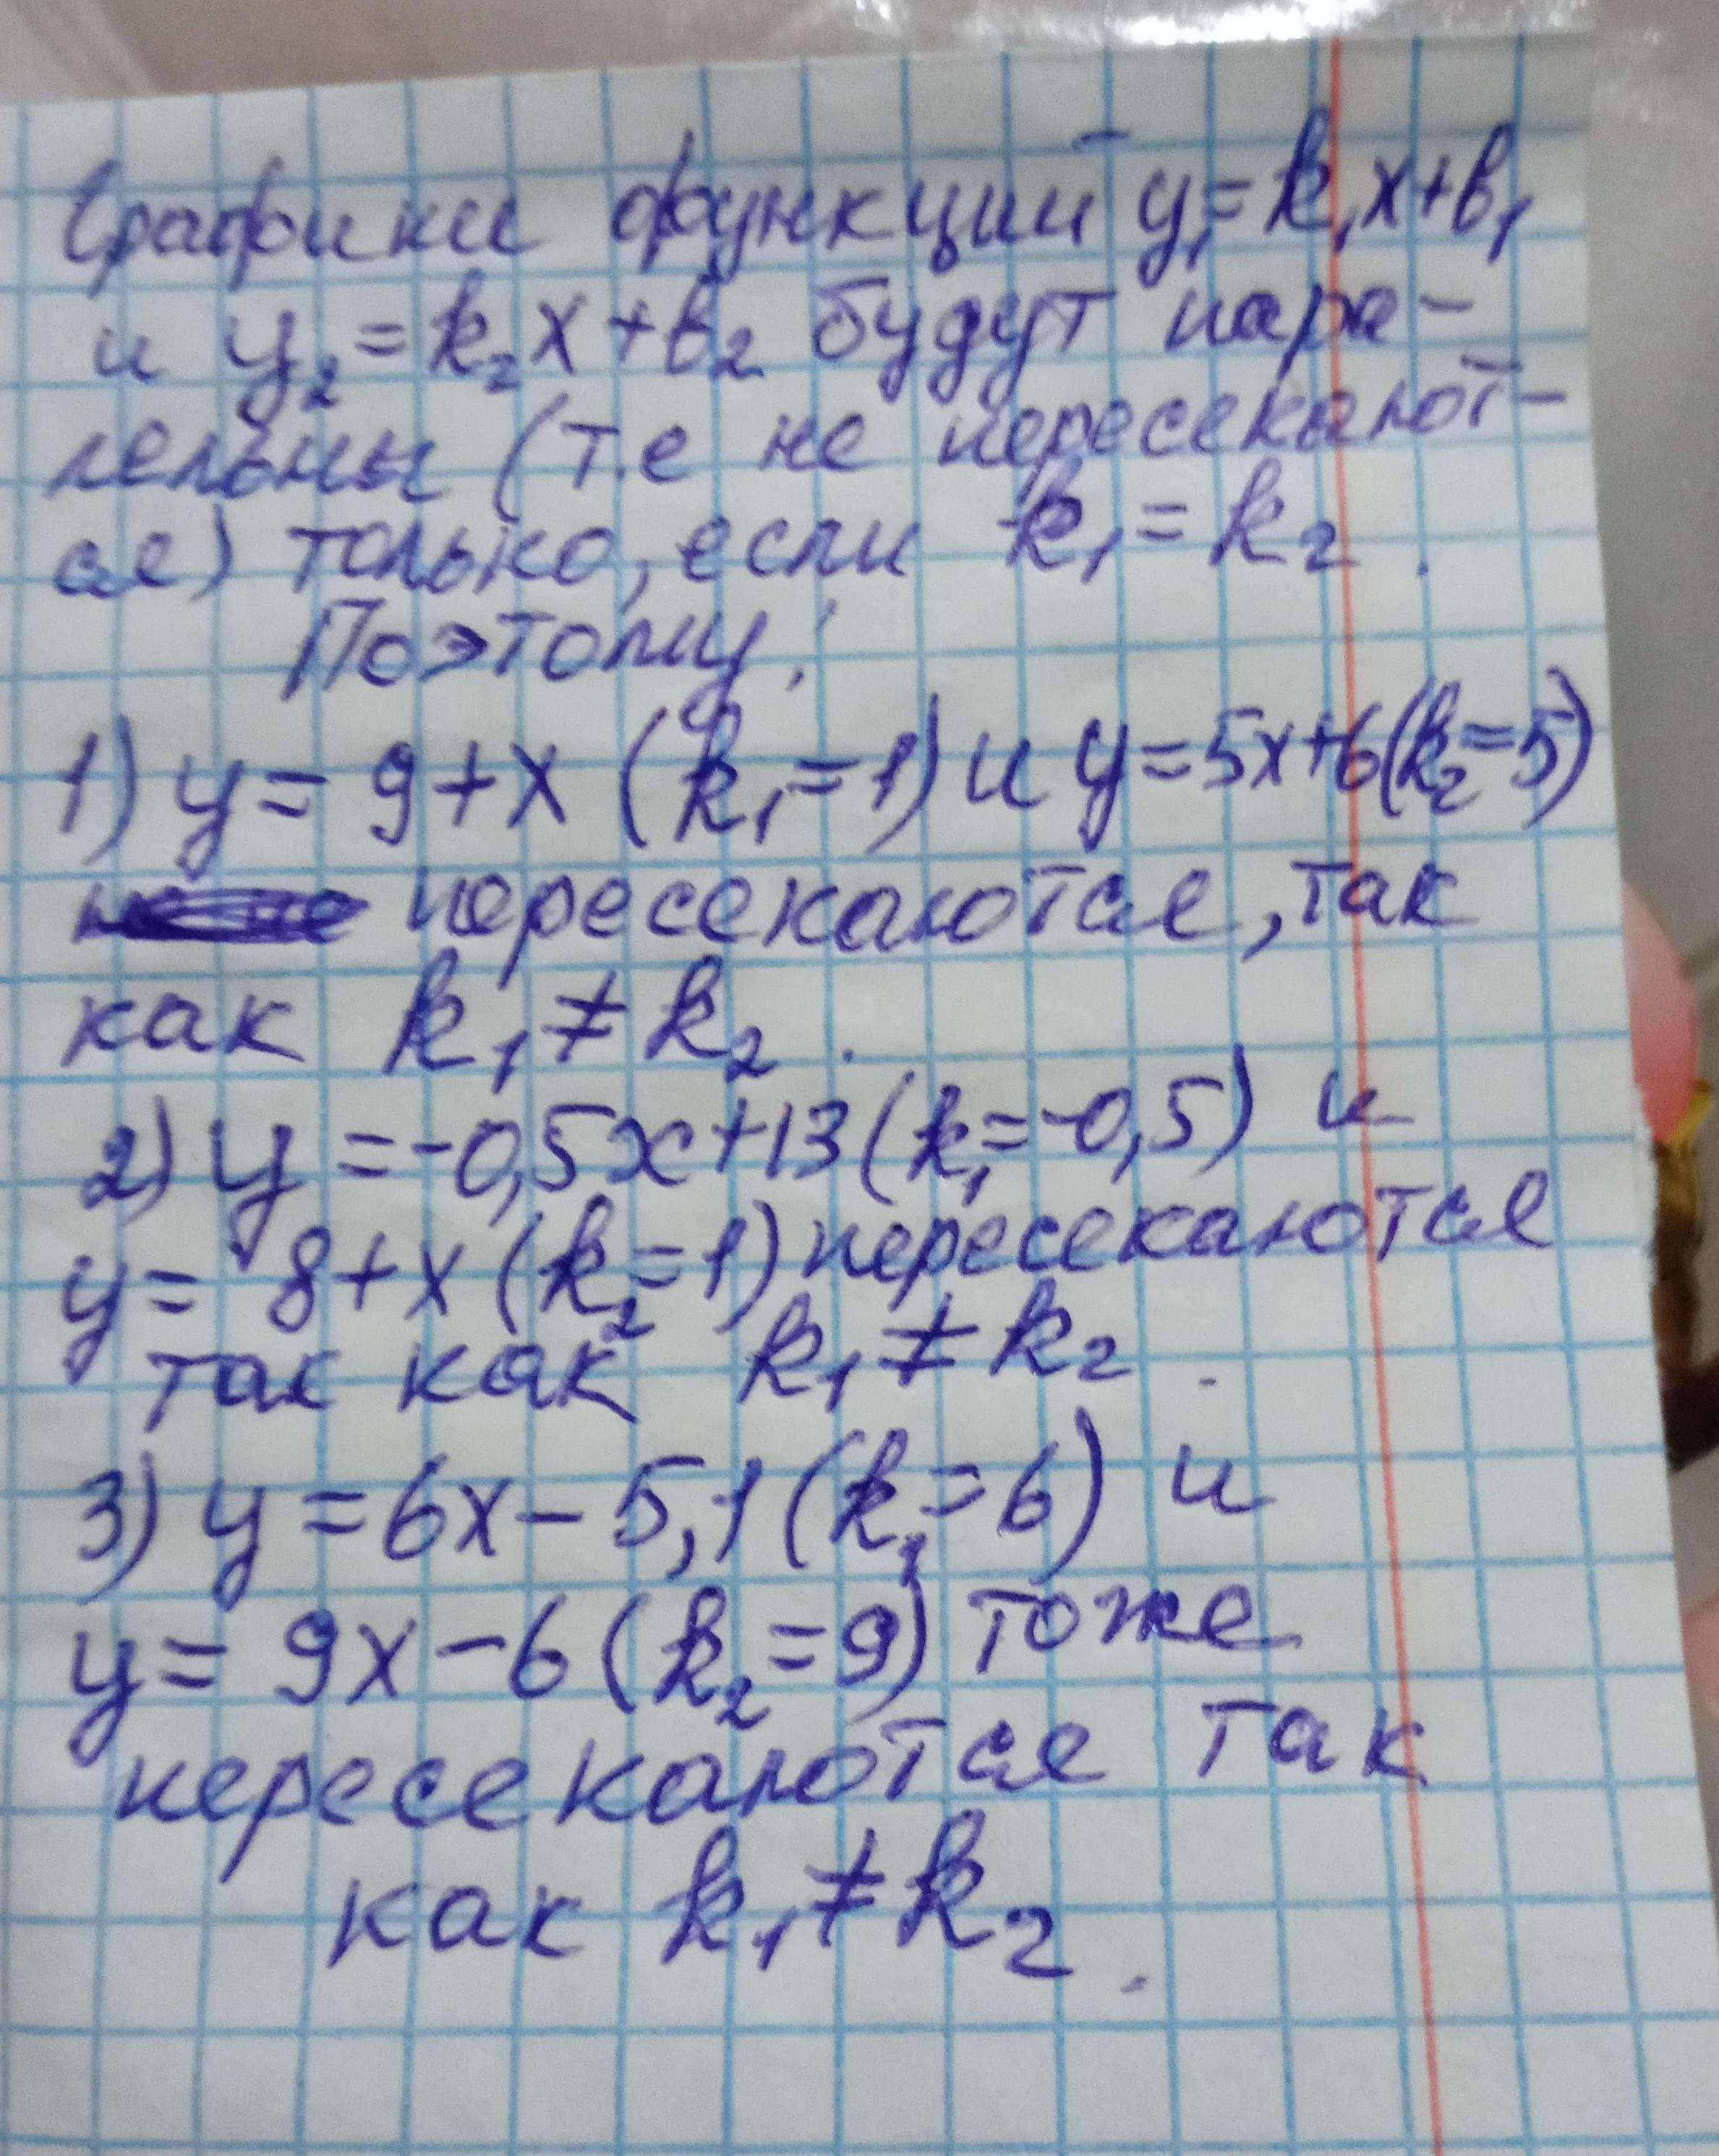 Графики функций y₁=k₁x+b₁
и y₂=k₂x+b₂ будут пара-
лельны (т.е не пересекают-
ся) только, если k₁=k₂.
Поэтому:
1) y=9+x (k₁=1) и y=5x+6(k₂=5)
пересекаются, так
как k₁≠k₂.
2) y=-0,5x+13(k₁=-0,5) и
y=8+x(k₂=1) пересекаются
так как k₁≠k₂.
3) y=6x-5,1(k₁=6) и
y=9x-6(k₂=9) тоже
пересекаются так
как k₁≠k₂.